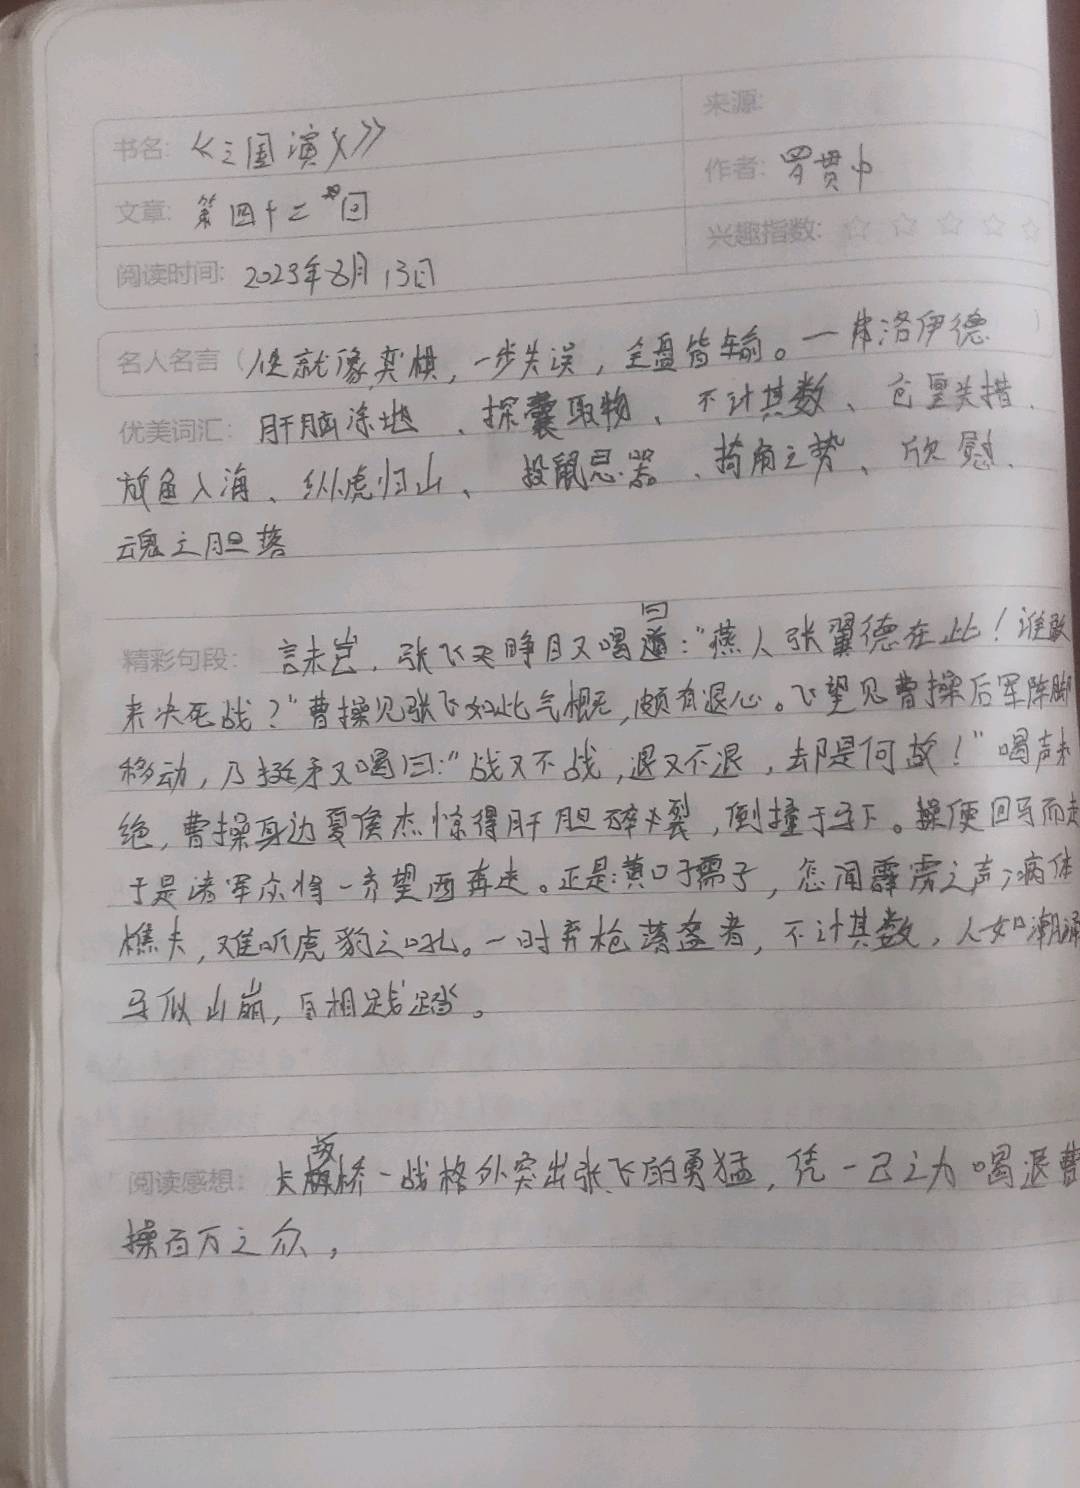 书名: 《三国演义》
来源:
作者: 罗贯中
文章: 第四十二回
兴趣指数: ☆ ☆ ☆ ☆ ☆
阅读时间: 2023年8月13日
名人名言(人生就像弈棋，一步失误，全盘皆输。—弗洛伊德)
优美词汇: 肝脑涂地、探囊取物、不计其数、仓皇失措、
放鱼入海、纵虎归山、投鼠忌器、掎角之势、欣慰、
魂飞胆落
精彩句段: 言未讫，张飞又睁目又喝曰:"燕人张翼德在此！谁敢
来决死战？"曹操见张飞如此气概，颇有退心。飞望见曹操后军阵脚
移动，乃挺矛又喝曰:"战又不战，退又不退，却是何故！"喝声未
绝，曹操身边夏侯杰惊得肝胆碎裂，倒撞于马下。操便回马而走
于是诸军众将一齐望西奔走。正是:黄口孺子，怎闻霹雳之声；病体
樵夫，难听虎豹之吼。一时弃枪落盔者，不计其数，人如潮涌
马似山崩，自相践踏。
阅读感想: 长坂桥一战格外突出张飞的勇猛，凭一己之力喝退曹
操百万之众，